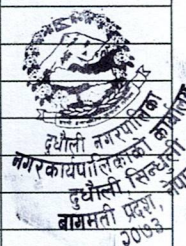 दुधौली नगरपालिका
नगर कार्यपालिकाको कार्यालय
दुधौली सिन्धुली
बागमती प्रदेश, नेपाल
२०७३